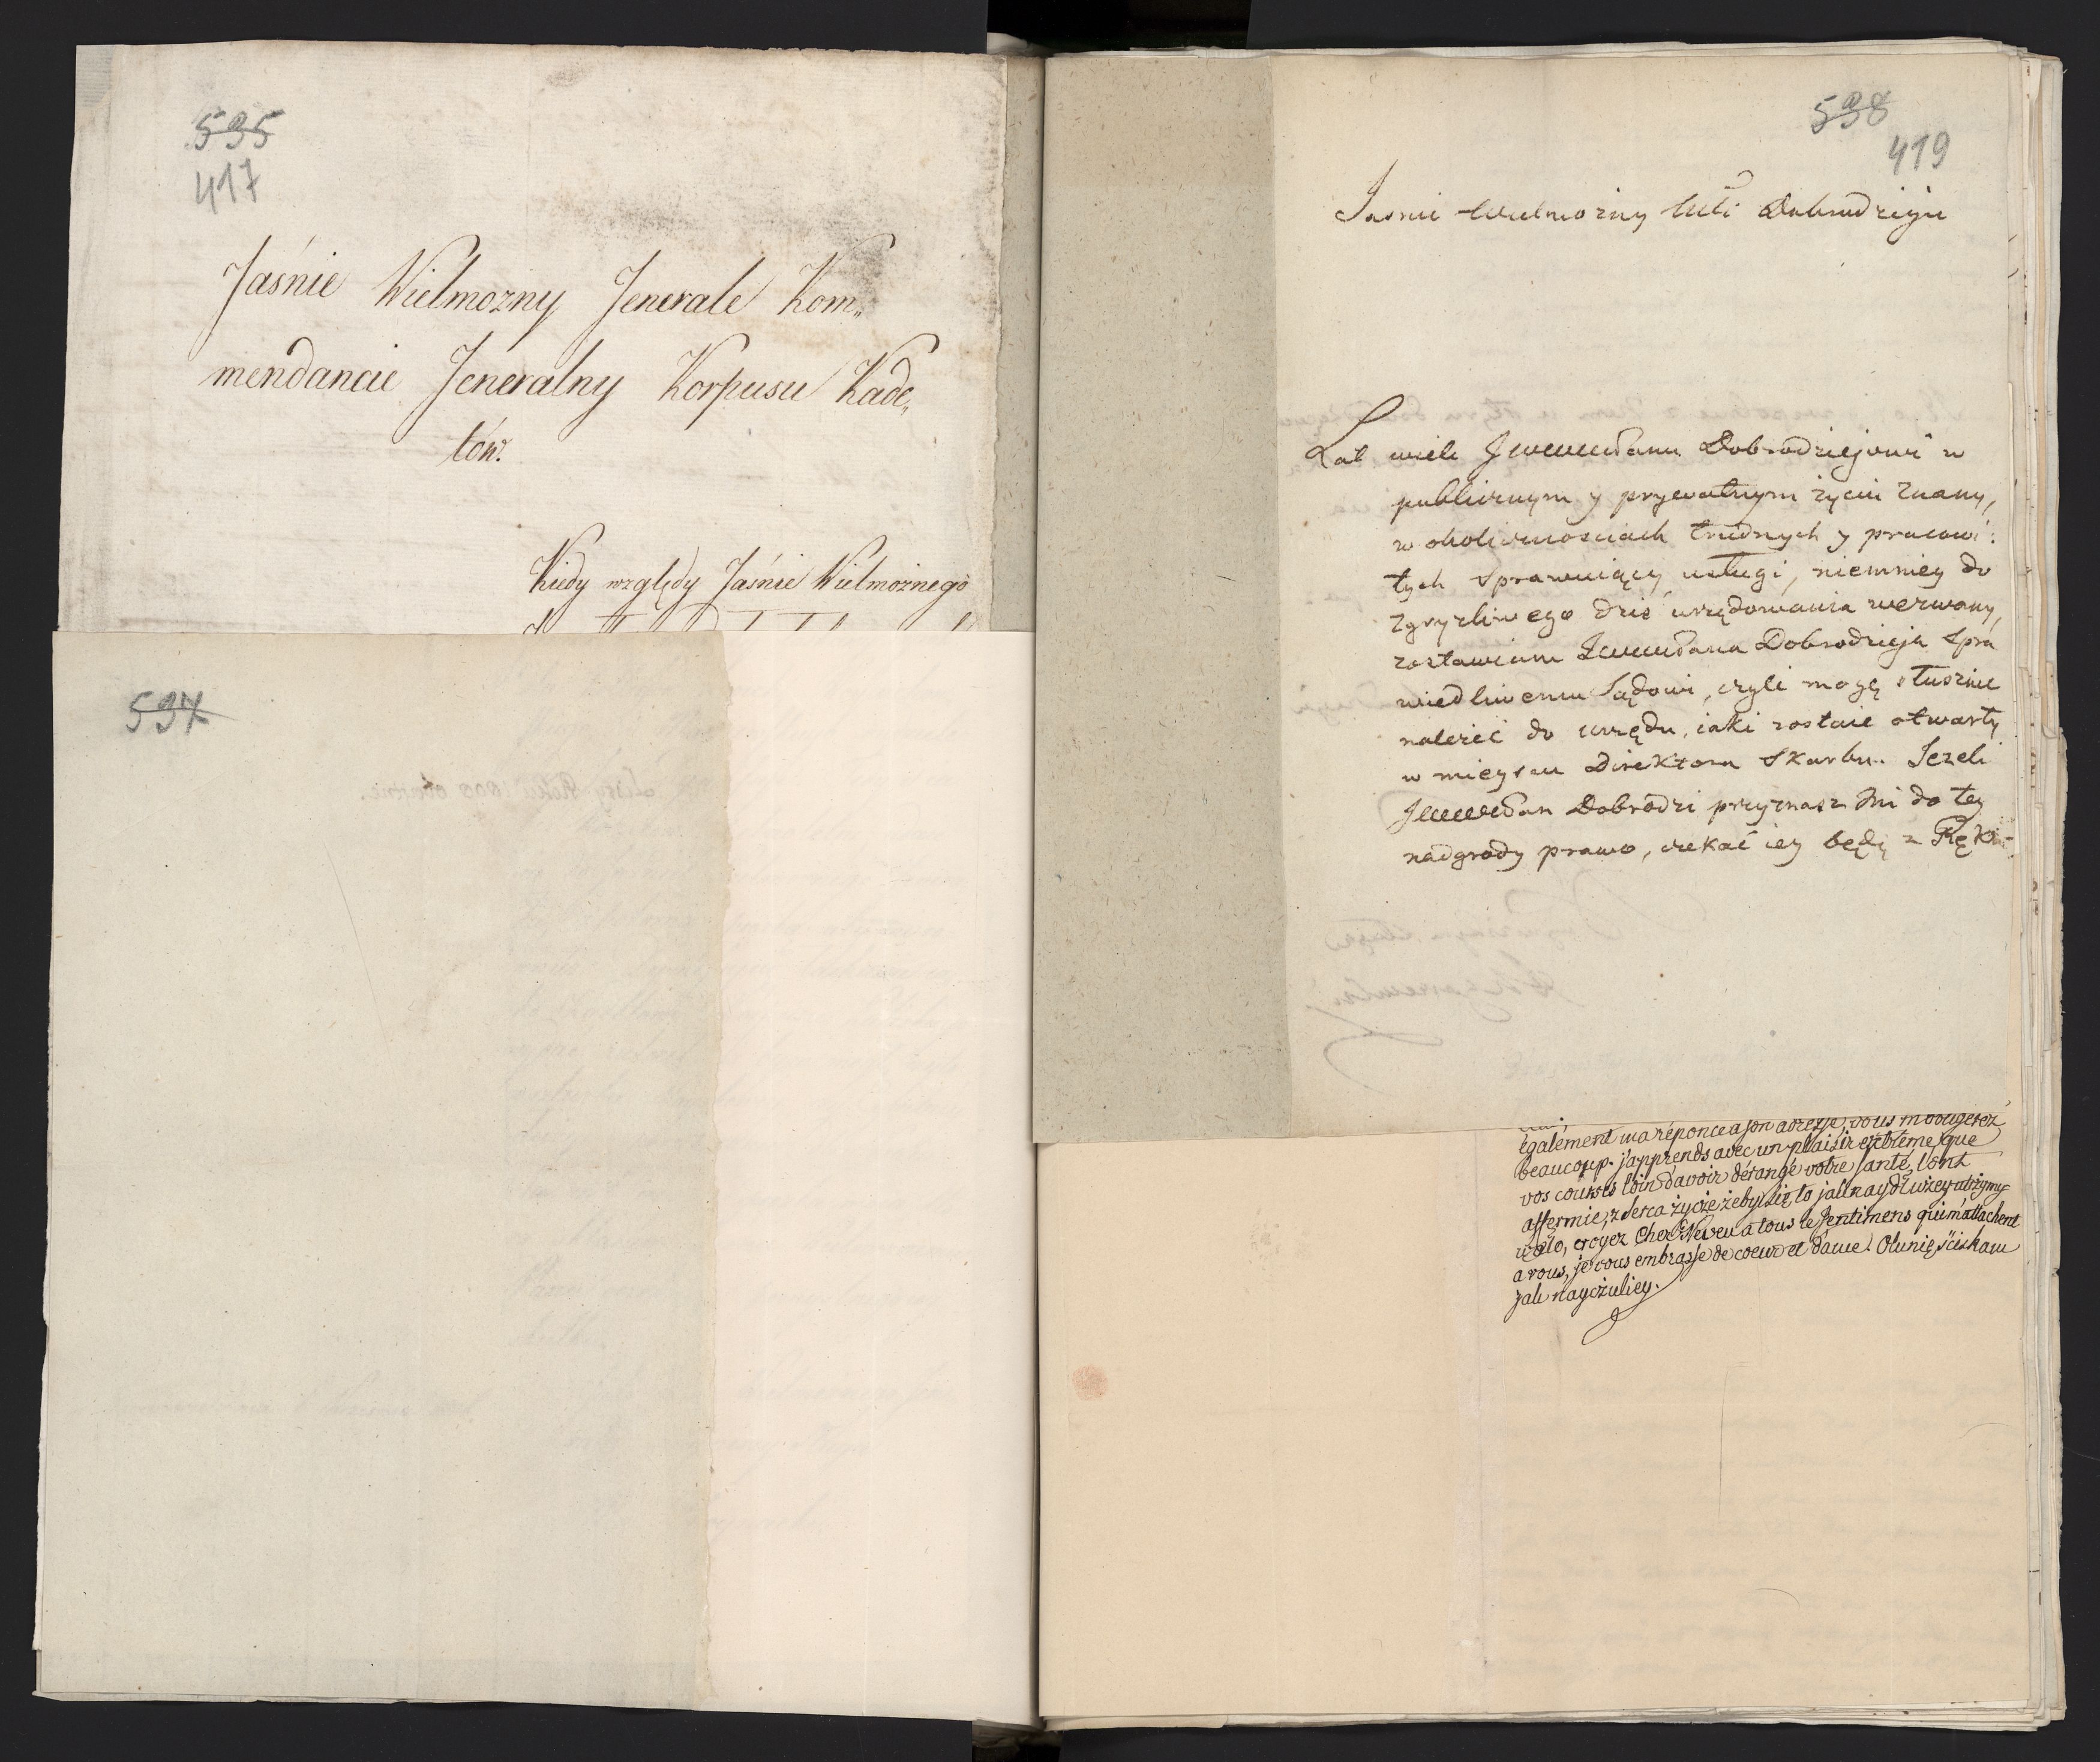 595
417
Jaśnie Wielmozny Jenerale Kom„
mendancie Jeneralny Korpusu Kade„
tów.
Kiedy względy Jaśnie Wielmożnego
597
598
419
Jasnie Wielmozny Dobrodzieju
Lat wiele Dobrodziejowi w
publicznym y prywatnym życiu znany,
w okolicznosciach trudnych y pracowi:
tych sprawuiący usługi, niemniey do
zgryzliwego dziś urzędowania wezwany,
zostawiam Dobrodzieja Spra
wiedliwemu Sądowi, czyli mogę słusznie
należeć do urzędu, iaki zostaie otwarty
w mieyscu Direktora Skarbu. Jezeli
Dobrodzi przyznasz mi do tey
nadgrody prawo, czekać iey będę z Ręki
également ma réponce a son adresse, vous m'obligerez
beaucoup. j'apprends avec un plaisir extrème, que
vos courses loin d'avoir dérangé votre santé, l'ont
affermie, z serca życzę żeby się to jak naydłużey utrzymy-
wało, croyez Cher Neveu a tous le sentimens qui m'attachent
a vous, je vous embrasse de coeur et d'ame. Olunię sciskam
jak nayczuliey.